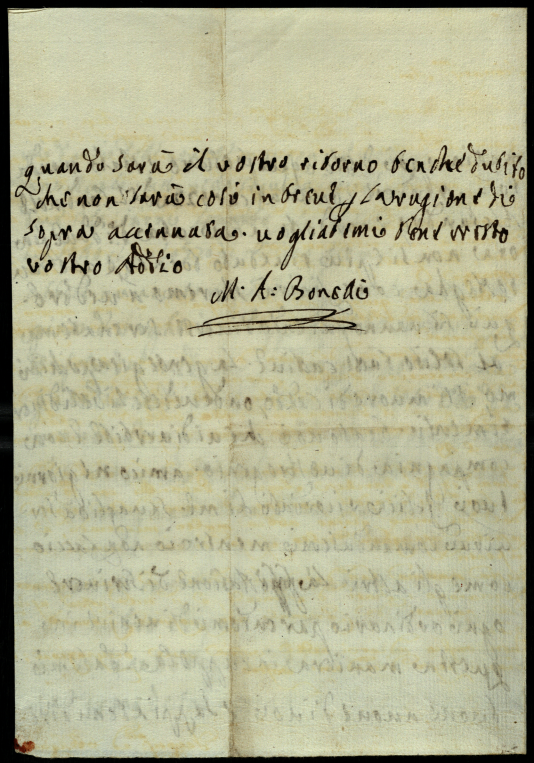 quando sarà il vostro ritorno benche dubito
che non sarà così in breve p la ragione di
sopra accennata. vogliatemi bene e resto
vostro Addio
M: A: Bonedi